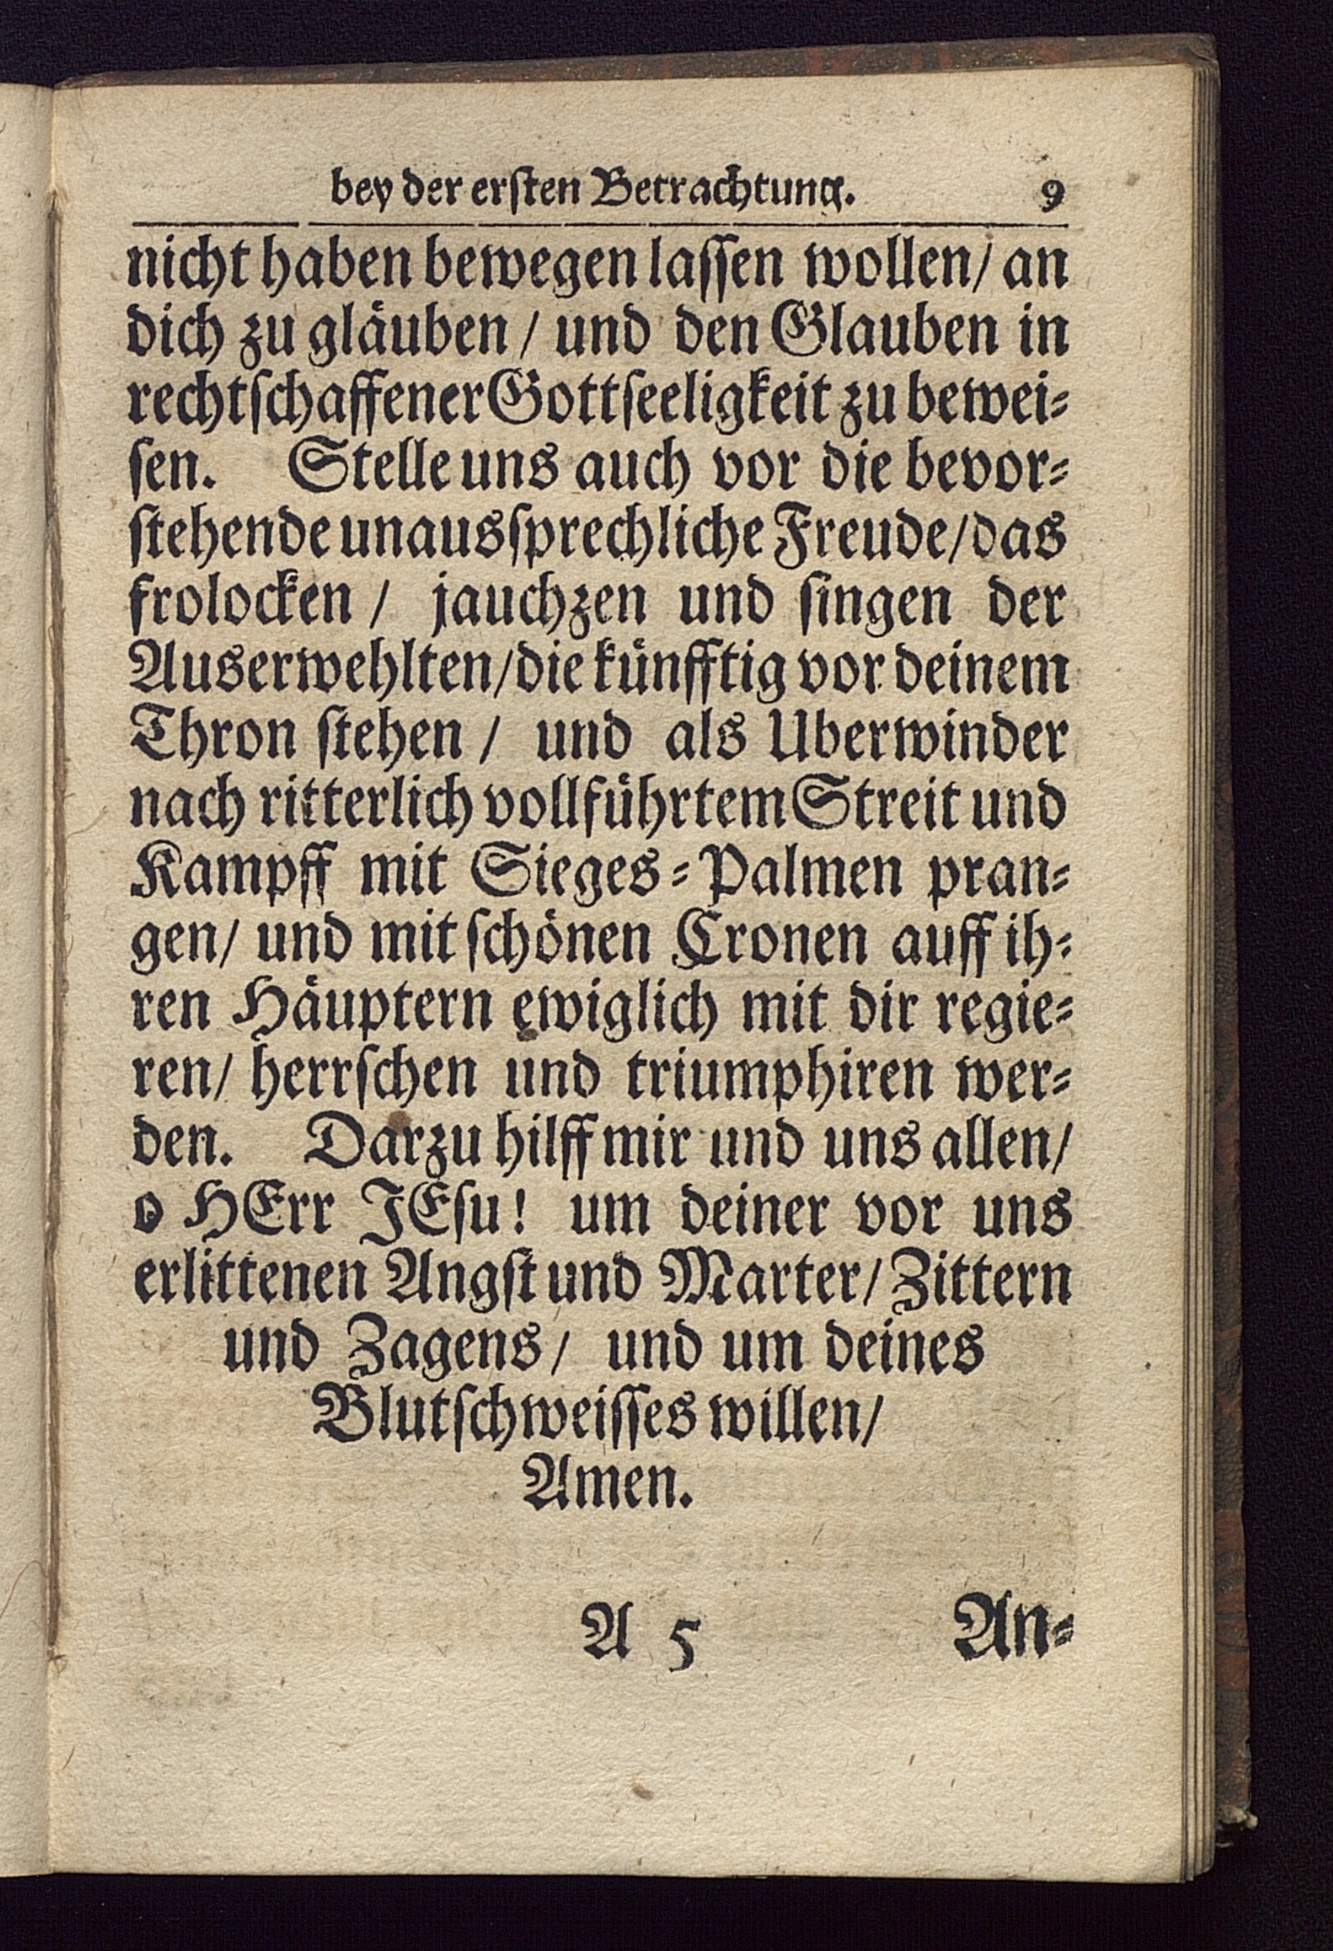 bey der ersten Betrachtung. 9
nicht haben bewegen lassen wollen/ an
dich zu gläuben/ und den Glauben in
rechtschaffener Gottseeligkeit zu bewei-
sen. Stelle uns auch vor die bevor-
stehende unaussprechliche Freude/das
frolocken/ jauchzen und singen der
Auserwehlten/die künfftig vor deinem
Thron stehen/ und als Uberwinder
nach ritterlich vollführtem Streit und
Kampff mit Sieges-Palmen pran-
gen/ und mit schönen Cronen auff ih-
ren Häuptern ewiglich mit dir regie-
ren/ herrschen und triumphiren wer-
den. Darzu hilff mir und uns allen/
o HErr JEsu! um deiner vor uns
erlittenen Angst und Marter/ Zittern
und Zagens/ und um deines
Blutschweisses willen/
Amen.
A 5 An-